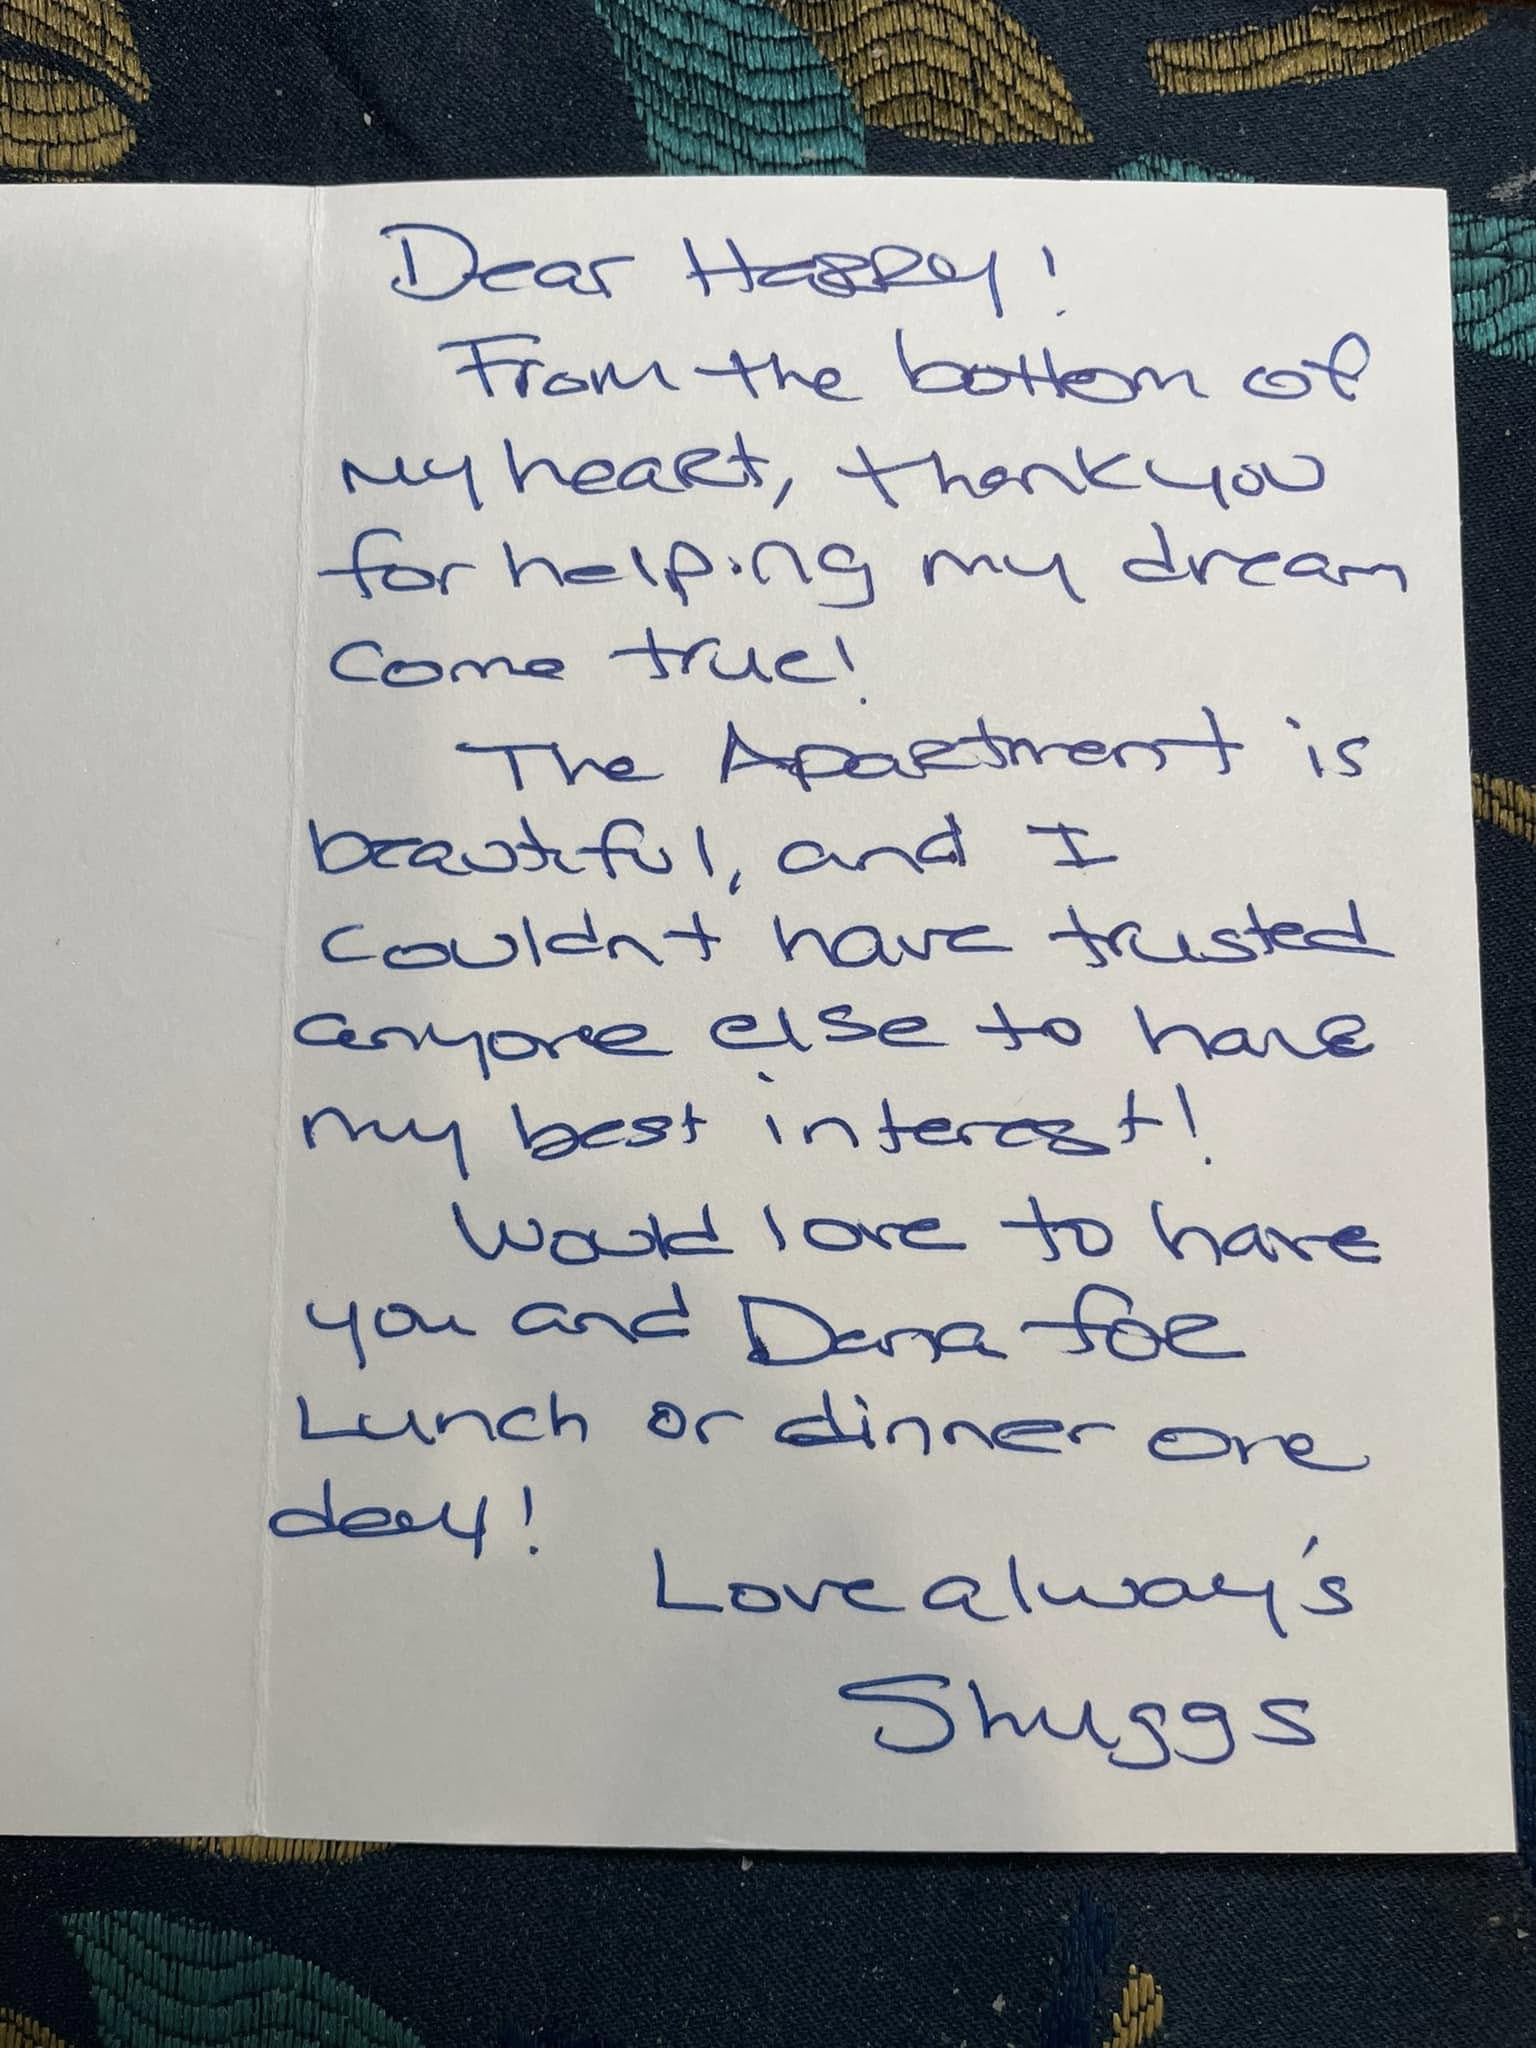 Dear Harry!
From the bottom of
my heart, thank you
for helping my dream
come true!
The Apartment is
beautiful, and I
couldnt have trusted
anyone else to have
my best interest!
Would love to have
you and Dana for
Lunch or dinner one
day!
Love alway's
Shuggs